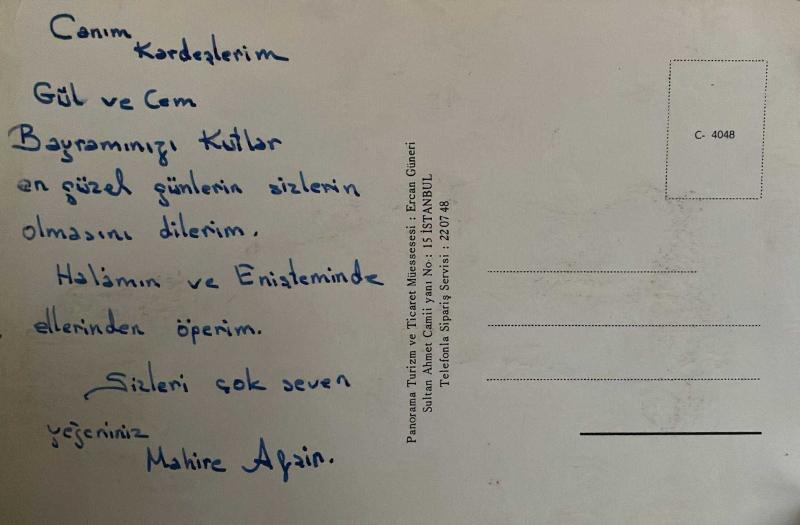 Canım
Kardeşlerim
Gül ve Cem
Bayramınızı Kutlar
en güzel günlerin sizlerin
olmasını dilerim.
Halâmın ve Enişteminde
ellerinden öperim.
Sizleri çok seven
yeğeniniz
Mahire
Panorama Turizm ve Ticaret Müessesesi : Ercan Güneri
Sultan Ahmet Camii yanı No : 15 İSTANBUL
Telefonla Sipariş Servisi : 22 07 48
C- 4048